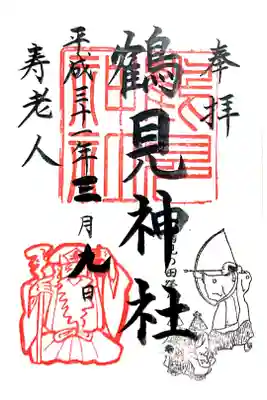 奉拝
鶴見神社
平成三十一年三月九日
寿老人